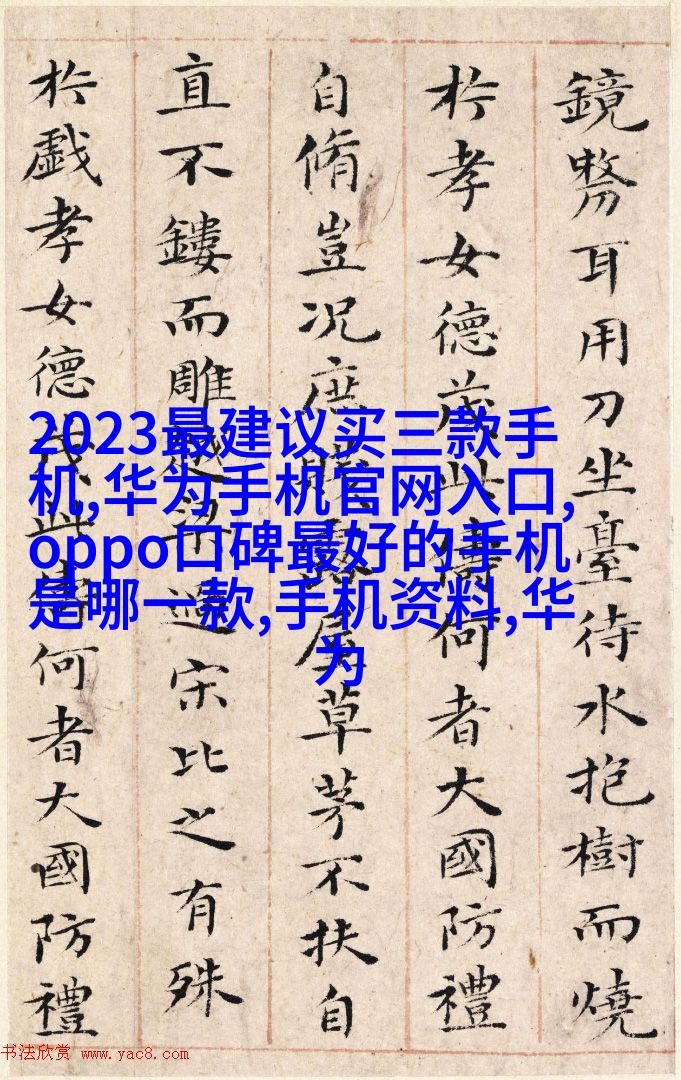 鏡耳用刀坐臺待水抱樹而燒
扵孝女德茂此儔何者大國防禮
自脩豈況庶賤露屋草茅不扶自
直不鏤而雕越梁過宋比之有殊
扵戲孝女德茂此儔何者大國防禮
2023最建议买三款手
机,华为手机官网入口,
oppo口碑最好的手机
是哪一款,手机资料,华
为
书法欣赏 www.yac8.com